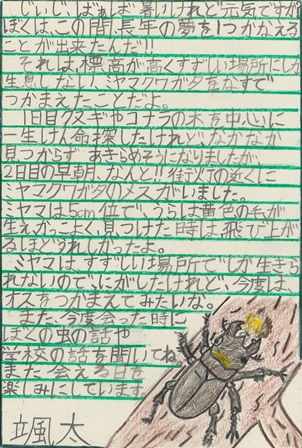 じいじ、ばあば暑いけれど元気ですか
ぼくは、この間、長年の夢を1つかなえる
ことが出来たんだ!!
それは、標高が高くすずしい場所にしか
生息しないミヤマクワガタをなすで
つかまえたことだよ。
1日目クヌギやコナラの木を中心に
一生けん命探したけれど、なかなか
見つからず、あきらめそうになりましたが、
2日目の早朝、なんと!!街灯の近くに
ミヤマクワガタのメスがいました。
ミヤマは5cm位で、うらは黄色の毛が
生えかっこよく、見つけた時は飛び上が
るほどうれしかったよ。
ミヤマは、すずしい場所でしか生きら
れないのでにがしたけれど、今度は
オスをつかまえてみたいな。
また、今度会った時に
ぼくの虫の話や
学校の話を聞いてね
また会える日を
楽しみにしています
颯太